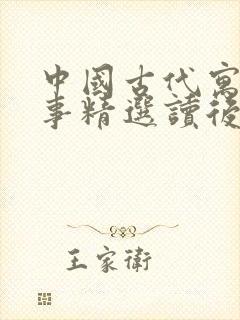 中國古代寓
事精選讀後
王家衛